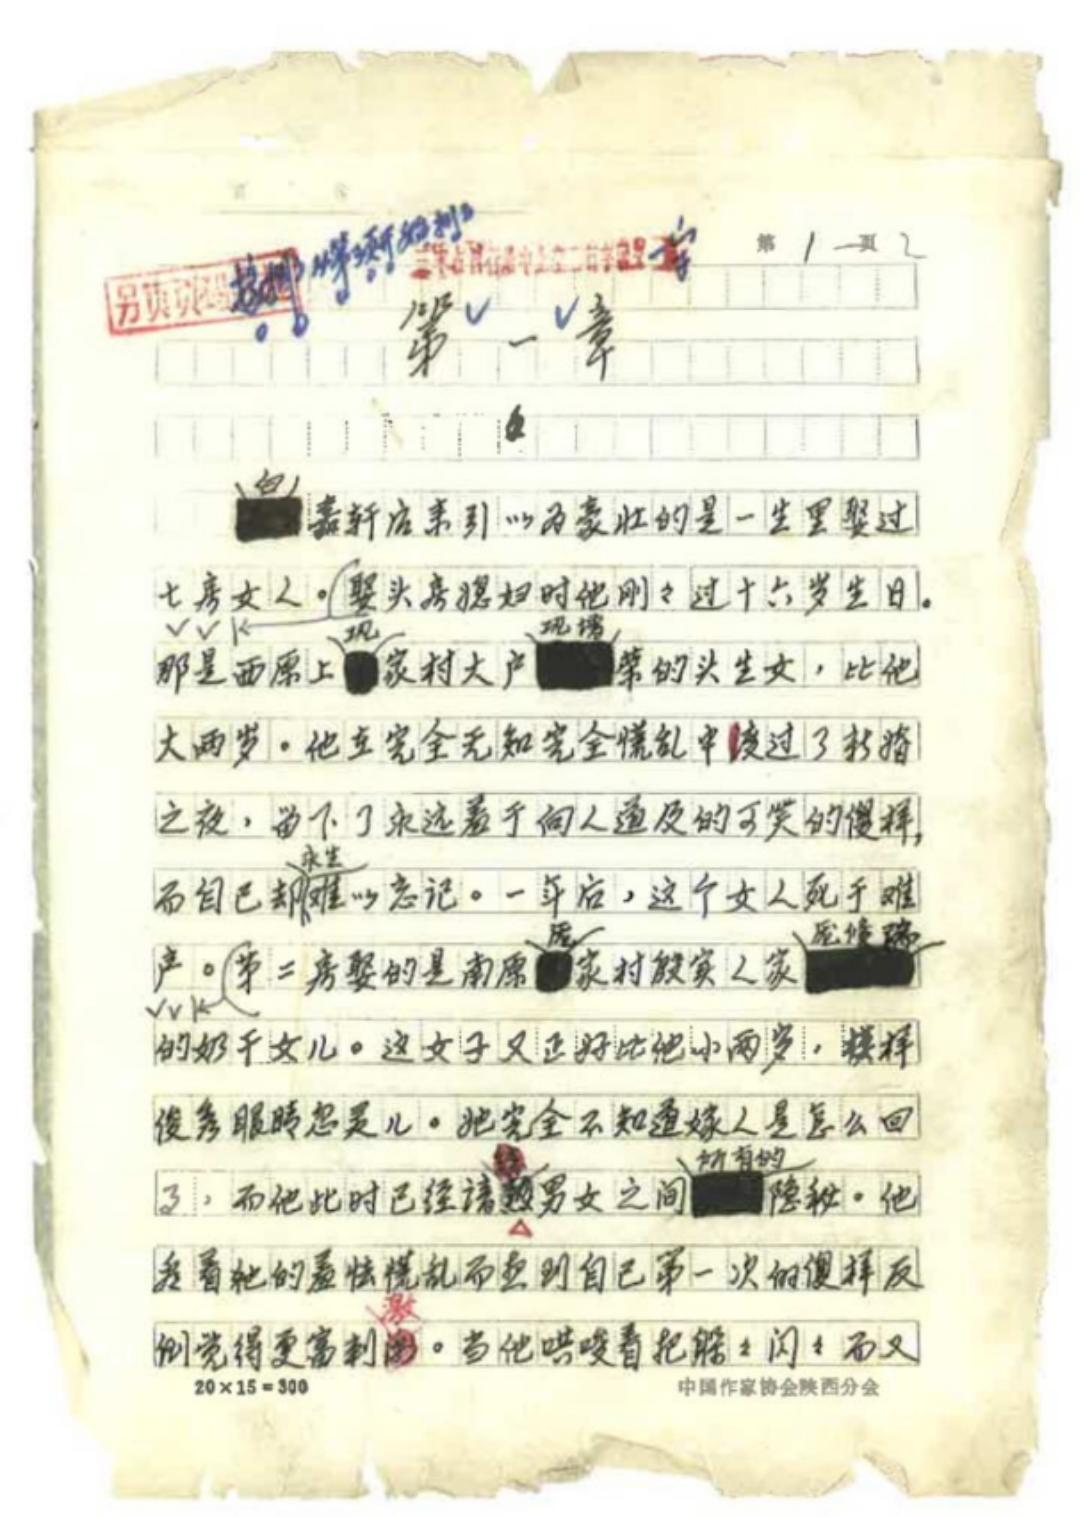 第 1 页 2
另页
第一章
白
嘉轩后来引以为豪壮的是一生里娶过
七房女人。娶头房媳妇时他刚々过十六岁生日。
巩 巩增
那是西原上家村大户荣的头生女，比他
大两岁。他在完全无知完全慌乱中度过了新婚
之夜，留下了永远羞于向人道及的可笑的傻样，
永生
而自己却难以忘记。一年后，这个女人死于难
庞 庞修瑞
产。第二房娶的是南原家村殷实人家
的奶干女儿。这女子又正好比他小两岁，模样
俊秀眼睛忽灵儿。她完全不知道嫁人是怎么回
所有的
了，而他此时已经谙熟男女之间隐秘。他
看着她的羞怯慌乱而想到自己第一次的傻样反
激
倒觉得更富刺。当他哄唆着把躲々闪々而又
20×15=300
中国作家协会陕西分会